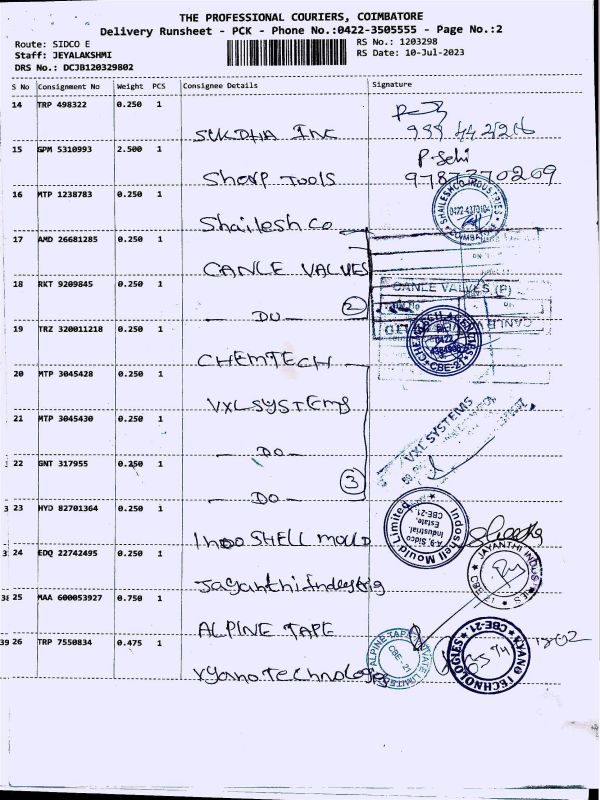 THE PROFESSIONAL COURIERS, COIMBATORE
Delivery Runsheet - PCK - Phone No.:0422-3505555 - Page No.:2
Route: SIDCO E
RS No.: 1203298
Staff: JEYALAKSHMI
RS Date: 10-Jul-2023
DRS No.: DCJB120329802
S No Consignment No Weight PCS Consignee Details Signature
14 TRP 498322 0.250 1
SUKDHA INC
15 GPM 5310993 2.500 1
SHARP TOOLS 9787370209
16 MTP 1238783 0.250 1
Shailesh co
SHAILESHCO INDUSTRIES
17 AMD 26681285 0.250 1
CANCE VALVES
18 RKT 9209845 0.250 1
DO 2
19 TRZ 320011218 0.250 1
CHEMTECH
CBE-21
20 MTP 3045428 0.250 1
VXL SYSTEMS
VXL SYSTEMS
21 MTP 3045430 0.250 1
DO
22 GNT 317955 0.250 1
DO 3
3 23 HYD 82701364 0.250 1
INDO SHELL MOULD
Indoshell Mould Limited
A-9, Sidco
Industrial
Estate,
CBE-21.
3 24 EDQ 22742495 0.250 1
Jayanthi Industries
JAYANTHI INDUSTRIES
CBE 21
38 25 MAA 600053927 0.750 1
ALPINE TAPE
ALPINE TAPE PRIVATE LIMITED
CBE - 21
39 26 TRP 7550834 0.475 1
Kyano Technologies
KYANO TECHNOLOGIES
CBE-21.